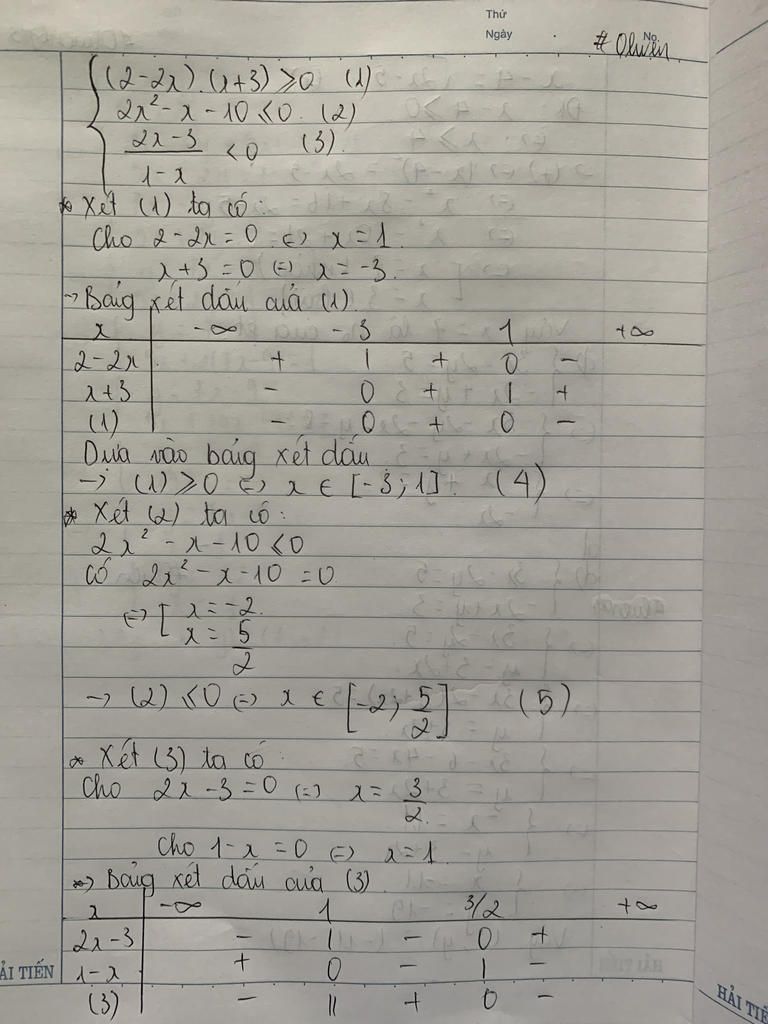 Thứ
Ngày
No.
# Oliver
(2-2x).(x+3) ≥0 (1)
2x² - x - 10 ≤0. (2)
(2x-3)/(1-x) <0 (3).
* Xét (1) ta có:
Cho 2-2x=0 <=> x=1.
x+3=0 <=> x=-3.
→ Bảng xét dấu của (1).
x | -∞ -3 1 +∞
2-2x | + | + 0 -
x+3 | - 0 + | +
(1) | - 0 + 0 -
Dựa vào bảng xét dấu
→ (1) ≥0 <=> x ∈ [-3;1]. (4)
* Xét (2) ta có:
2x² - x - 10 ≤0
Có 2x² - x - 10 = 0
<=> [ x=-2.
x= 5/2
→ (2) ≤0 <=> x ∈ [-2; 5/2] (5)
* Xét (3) ta có
Cho 2x-3=0 <=> x= 3/2.
Cho 1-x=0 <=> x=1.
→ Bảng xét dấu của (3)
x | -∞ 1 3/2 +∞
2x-3 | - | - 0 +
ẢI TIẾN
1-x | + 0 - | -
(3) | - || + 0 -
HẢI TIẾ